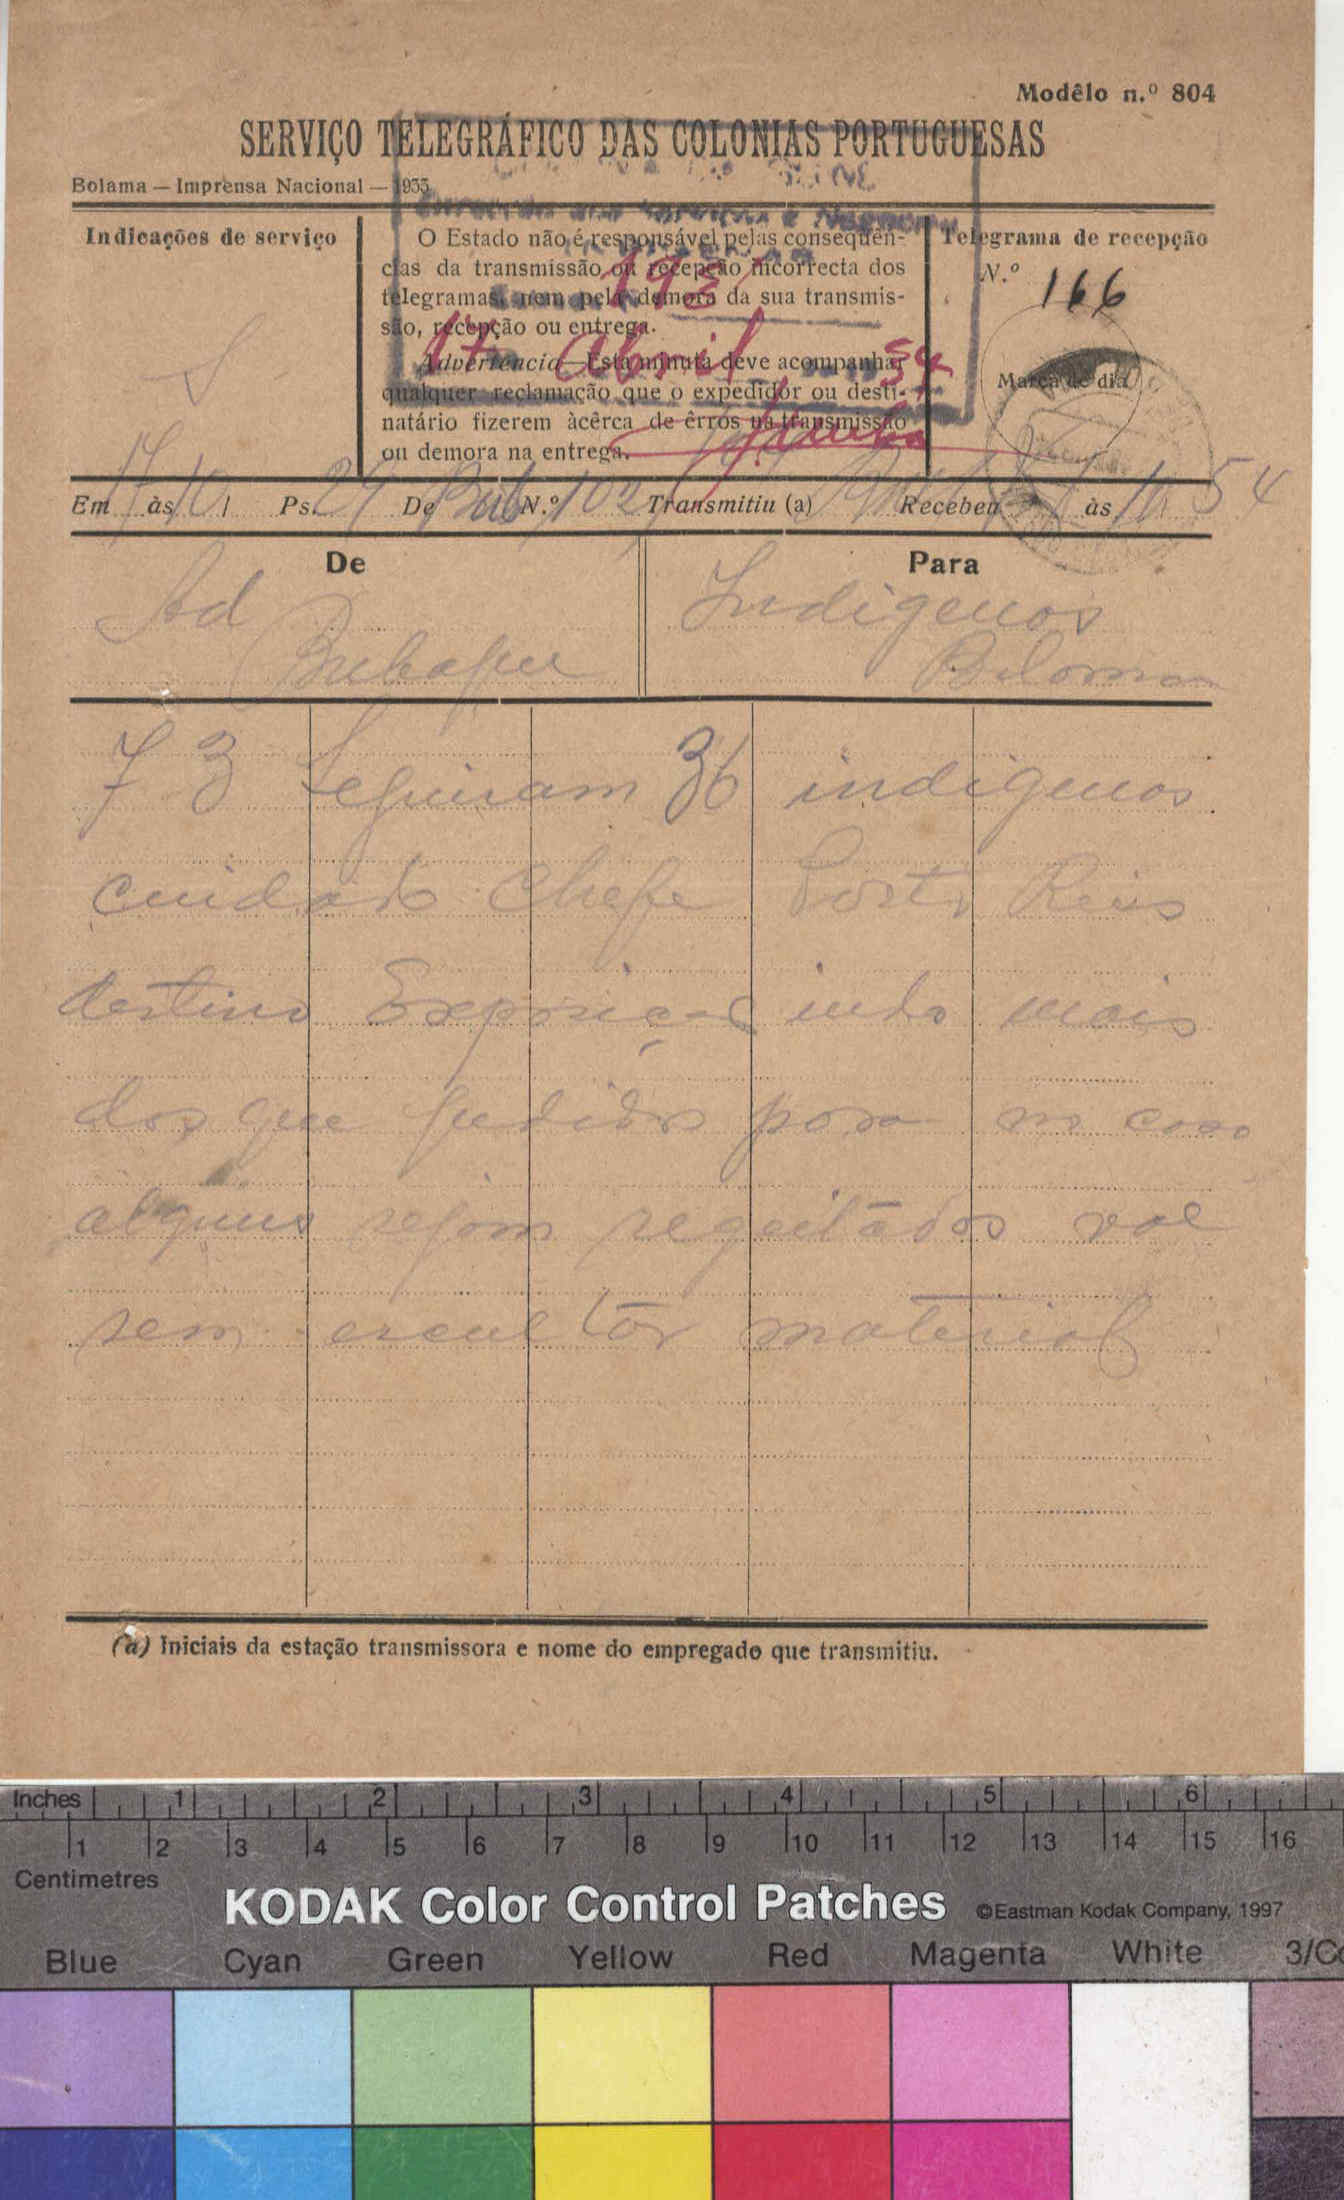 Modêlo n.º 804
SERVIÇO TELEGRÁFICO DAS COLONIAS PORTUGUESAS
Bolama — Imprensa Nacional — 1933
Indicações de serviço
S
O Estado não é responsável pelas conseqüên-
cias da transmissão ou recepção incorrecta dos
telegramas, nem pela demora da sua transmis-
são, recepção ou entrega.
Advertência—Esta minuta deve acompanhar
qualquer reclamação que o expedidor ou desti-
natário fizerem àcêrca de êrros na transmissão
ou demora na entrega.
193
17 Abril 34
Telegrama de recepção
N.º 166
Marca de dia
Em 17 às 10 Ps. 29 De Bub N.º 102 Transmitiu (a) Recebeu às 16 54
De
Para
Ad
Bubaque
Indigenos
Bolama
73 Seguiram 36 indigenos
cuidado Chefe Posto Reis
destino Exposição indo mais
dos que pedidos para no caso
alguns sejam regeitados vae
sem escultor material
(a) Iniciais da estação transmissora e nome do empregado que transmitiu.
Inches 1 2 3 4 5 6
1 2 3 4 5 6 7 8 9 10 11 12 13 14 15 16
Centimetres
KODAK Color Control Patches ©Eastman Kodak Company, 1997
Blue Cyan Green Yellow Red Magenta White 3/Co